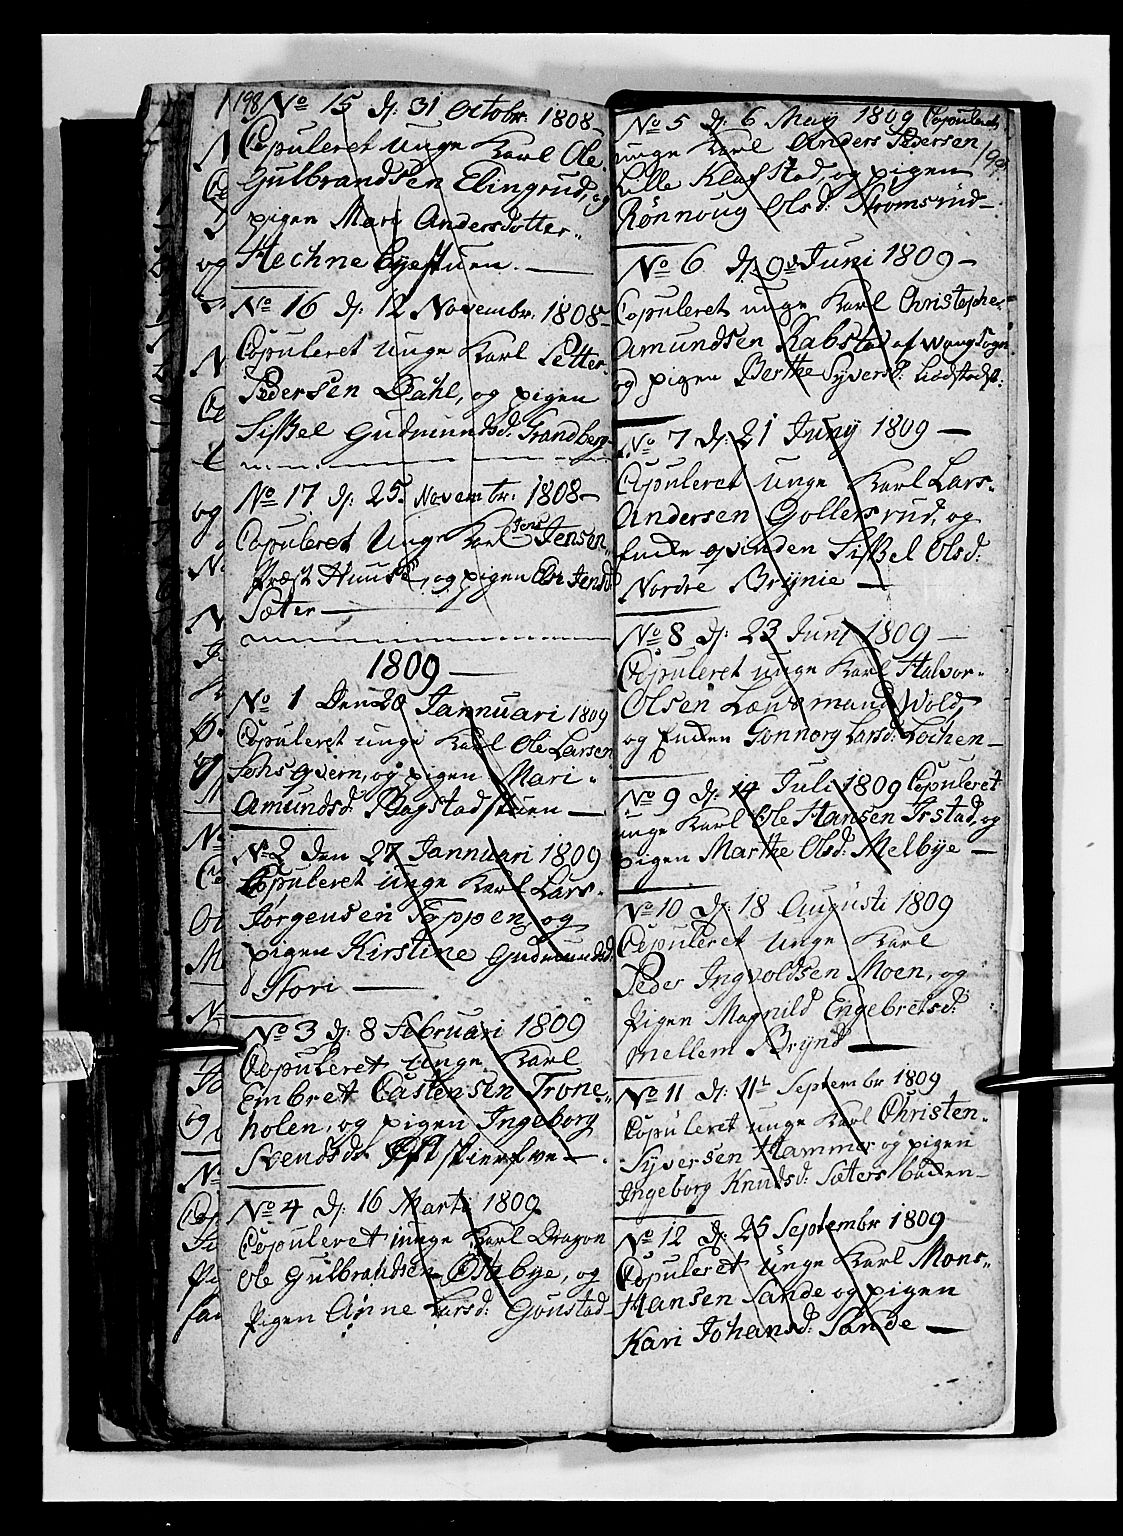 198
No 15 d: 31 Octobr. 1808 –
Copuleret unge Karl Ole
Gulbrandsen Elingrud, og
pigen Mari Andersdotter
Hechne Eyestuen. —
No 16 d: 12 Novembr: 1808 –
Copuleret unge Karl Petter
Pedersen Dahl, og pigen
Sissel Gudmundsd: Frandberg
No 17 d: 25 Novembr: 1808 –
Copuleret Unge Karl Jens Jensen
Præst Huuse, og pigen Else Jensd
Sæter —
1809 —
No 1 Den 20 Jannuari 1809
Copuleret unge Karl Ole Larsen
og pigen Mari
Amundsd: Bagstadstuen —
No 2 den 27 Jannuari 1809
Copuleret unge Karl Lars
Jørgensen Toppen, og
pigen Kirstine Gudmundsd:
Stori —
No 3 d: 8 Februari 1809
Copuleret unge Karl
Embret Castensen Trone
holen, og pigen Ingeborg
Svendsd:
No 4 d: 16 Marti 1809
Copuleret unge Karl Dragon
Ole Gulbrandsen Østbye, og
Pigen Anne Larsd: Gonstad
No 5 d: 6 May 1809 Copuleret
199
unge Karl Anders Pedersen
Lille Klafstad, og pigen
Rønnoug Olsd: Stromsrud –
No 6 d: 9d Juni 1809 –
Copuleret unge Karl Christopher
Amundsen Kabstad af Wang Sogn
og pigen Berthe Syversd:
No 7 d: 21 Juny 1809 —
Copuleret Unge Karl Lars
Andersen Gollersrud, og
Enke qvinden Sissel Olsd:
Nordre Brynie —
No 8 d: 23 Juni 1809 —
Copuleret unge Karl Halvor
Olsen Lænsmand Wold
og Enken Gonnorg Larsd: Lochen –
No 9 d: 14 Juli 1809 Copuleret
unge Karl Ole Hansen Irstad, og
pigen Marthe Olsd: Melbye —
No 10 d: 18 Augusti 1809
Copuleret Unge Karl
Peder Ingvoldsen Moen, og
Pigen Magnild Engebretsd:
mellem Brynd —
No 11 d: 11t Septembr 1809
Copuleret unge Karl Christen
Syversen Hammer og pigen
Ingeborg Knudsd: Sæters bakken –
No 12 d: 25 Septembr 1809
Copuleret unge Karl Mons
Hansen Sande og pigen
Kari Johansd: Sande —